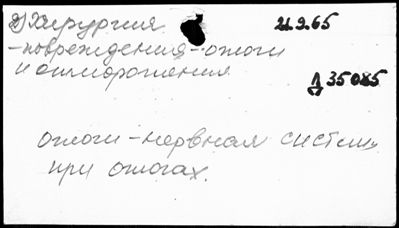 2) Хирургия 21.9.65
-повреждения-ожоги
и отморожения
Д 35085
ожоги-нервная систем
при ожогах.